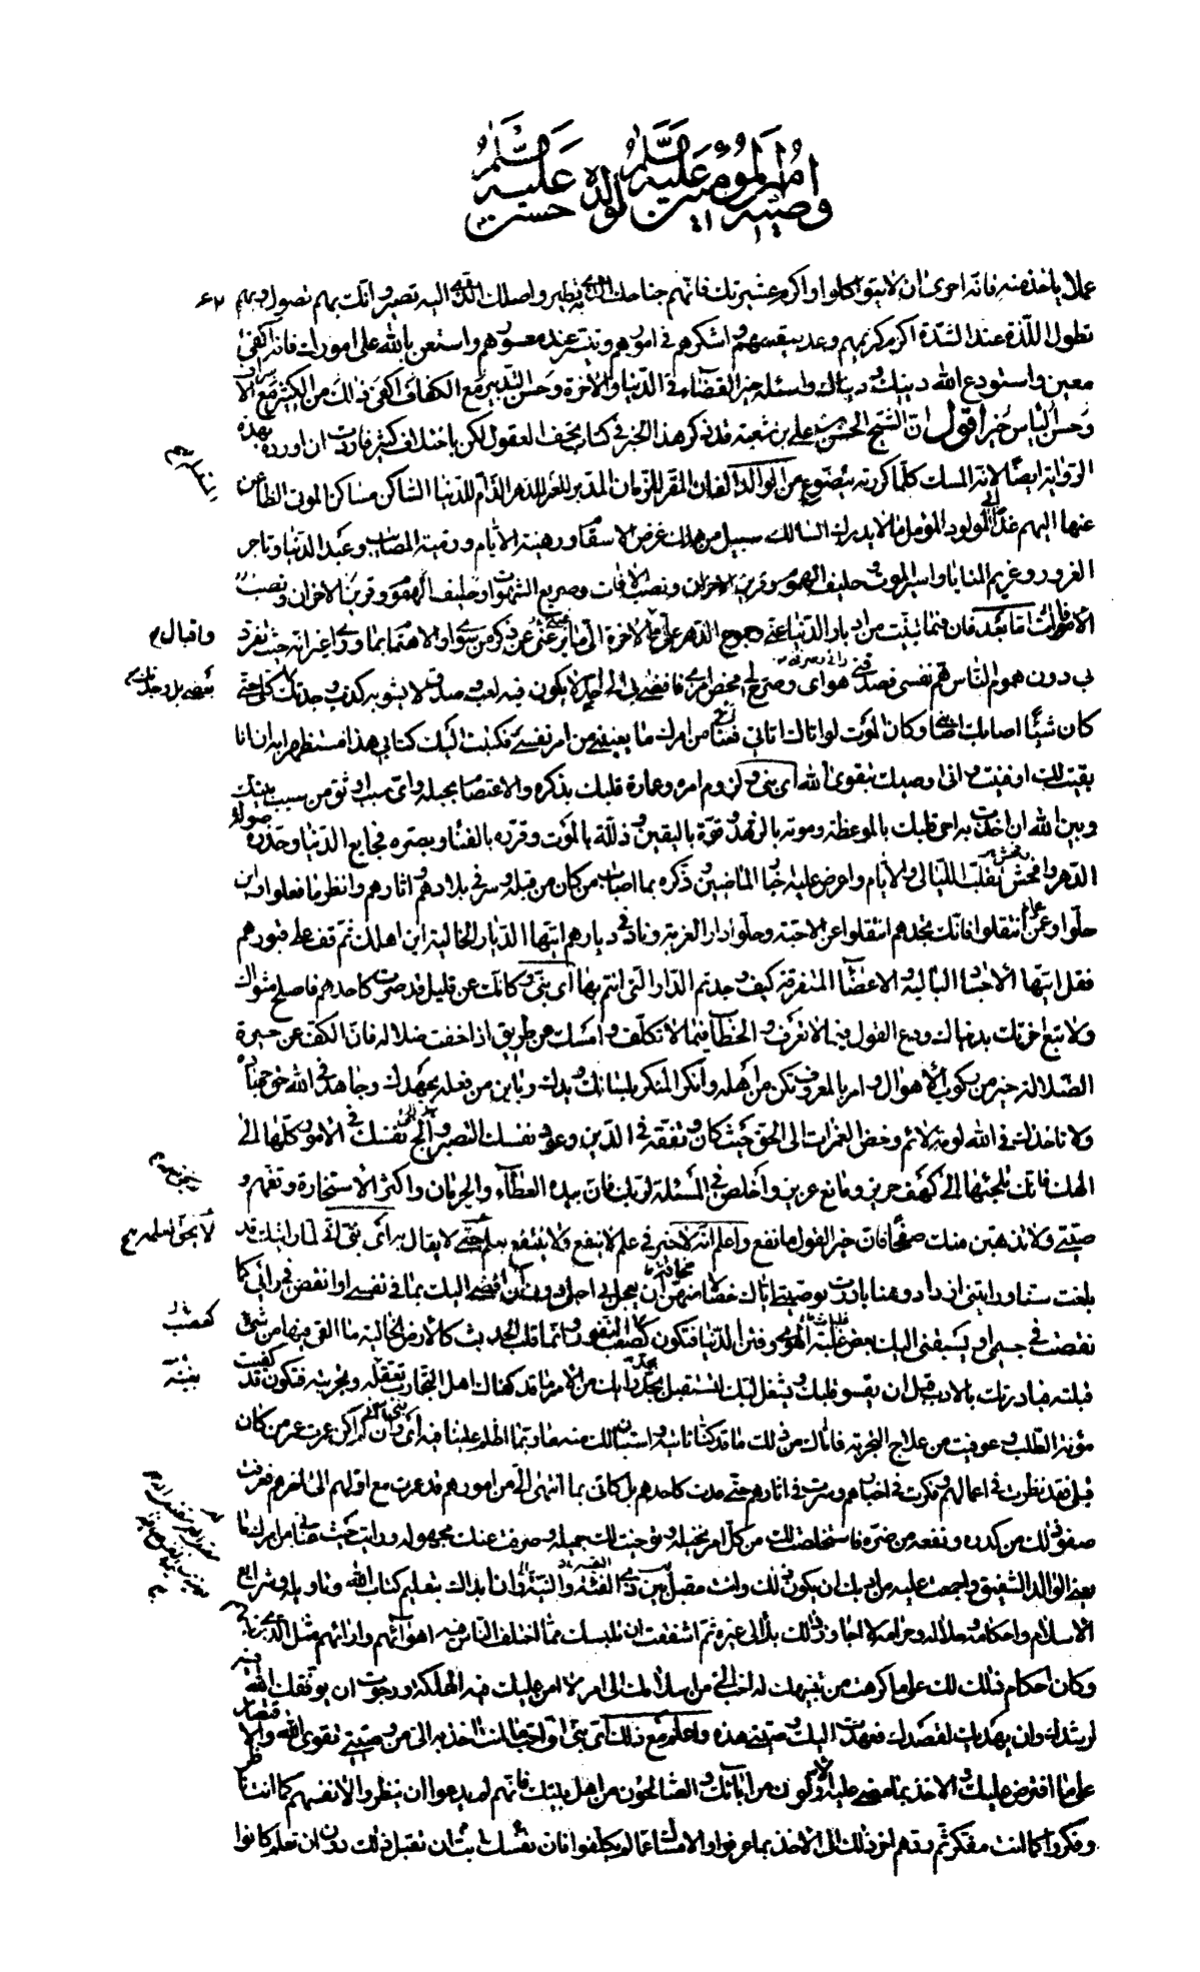 وصية امير المؤمنين عليه السلام لولده حسن عليه السلام
عملا ياخذه به فانه احرى ان لا يتواكلوا واكرم عشيرتك فانهم جناحك الذي به تطير واصلك الذي اليه تصير وانك بهم تصول وبهم
تطول اللذة عند الشدة اكرم كريمهم وعد سقيمهم واشركهم في امورهم وتيسر عند معسورهم واستعن بالله على امورك فانه اكفى
معين واستودع الله دينك ودنياك واسئله خير القضاء في الدنيا والاخرة وحسن التدبير مع الكفاف اكفى لك من الكثير مع الاسراف
وحسن الياس خير اقول ان الشيخ الحسن بن علي بن شعبة قد ذكر هذا الخبر في كتاب تحف العقول لكن باختلاف كثير فاردت ان اورده بهذه
الرواية ايضا لانه المسك كلما كررته يتضوع من الوالد الفان المقر للزمان المدبر العمر للدهر الذام للدنيا الساكن مساكن الموتى الظاعن
عنها اليهم غدا الى المولود المؤمل ما لا يدرك السالك سبيل من هلك غرض الاسقام ورهينة الايام ورمية المصائب وعبد الدنيا وتاجر
الغرور وغريم المنايا واسير الموت وحليف الهموم وقرين الاحزان ونصب الافات وصريع الشهوات وحليف الهموم وقرين الاحزان ونصب
الاموات اما بعد فان فيما تبينت من ادبار الدنيا عني وجموح الدهر علي واقبال الاخرة الي ما يزعني عن ذكر من سواي والاهتمام بما ورائي غير انه حيث تفرد
بي دون هموم الناس هم نفسي فصدفني هواي وصرح لي محض امري فافضى بي الى جد لا يكون فيه لعب وصدق لا يشوبه كذب وجدتك كلي حتى
كان شيئا اصابك اصابني وكان الموت لو اتاك اتاني فعناني من امرك ما يعنيني من امر نفسي فكتبت اليك كتابي هذا مستظهرا به ان انا
بقيت لك او فنيت واني اوصيك بتقوى الله اي بني ولزوم امره وعمارة قلبك بذكره والاعتصام بحبله واي سبب اوثق من سبب بينك
وبين الله ان اخذت به احي قلبك بالموعظة وموته بالزهد وقوة باليقين وذلله بالموت وقرره بالفناء وبصره فجايع الدنيا وحذره صولة
الدهر وفحش تقلب الليالي والايام واعرض عليه اخبار الماضين وذكره بما اصاب من كان من قبله وسر في بلادهم واثارهم وانظر ما فعلوا واين
حلوا وعما انتقلوا فانك تجدهم انتقلوا عن الاحبة وحلوا دار الغربة وناد في ديارهم ايتها الديار الخالية اين اهلك ثم قف على قبورهم
فقل ايتها الاجساد البالية والاعضاء المتفرقة كيف وجدتم الدار التي انتم بها اي بني وكانك عن قليل قد صرت كاحدهم فاصلح مثواك
ولا تبع اخرتك بدنياك ودع القول فيما لا تعرف والخطاب فيما لا تكلف وامسك عن طريق اذا خفت ضلاله فان الكف عن حيرة
الضلالة خير من ركوب الاهوال وامر بالمعروف تكن من اهله وانكر المنكر بلسانك ويدك وباين من فعله بجهدك وجاهد في الله حق جهاده
ولا تاخذك في الله لومة لائم وخض الغمرات الى الحق حيث كان وتفقه في الدين وعود نفسك التصبر والجئ نفسك في الامور كلها الى
الهك فانك تلجئها الى كهف حريز ومانع عزيز واخلص في المسئلة لربك فان بيده العطاء والحرمان واكثر الاستخارة وتفهم و
صيتي ولا تذهبن منك صفحا فان خير القول ما نفع واعلم انه لا خير في علم لا ينفع ولا ينتفع بعلم حتى لا يقال به اي بني اني لما رايتك قد
بلغت سنا ورايتني ازداد وهنا بادرت بوصيتي اياك خصالا منهن ان يعجل بي اجلي دون ان افضي اليك بما في نفسي او انقص في رائي كما
نقصت في جسمي او يسبقني اليك بعض غلبة الهوى وفتن الدنيا فتكون كالصعب النفور وانما قلب الحدث كالارض الخالية ما القي فيها من شيء
قبلته فبادرتك بالادب قبل ان يقسو قلبك ويشتغل لبك لتستقبل بجد رايك من الامر ما قد كفاك اهل التجارب تعقله وتجربته فتكون قد كفيت
مؤنة الطلب وعوفيت من علاج التجربة فاتاك من ذلك ما قد كنا ناتيه واستبان لك منه ما ربما اظلم علينا فيه اي بني وان لم اكن عمرت عمر من كان
قبلي فقد نظرت في اعمالهم وفكرت في اخبارهم وسرت في اثارهم حتى عدت كاحدهم بل كاني بما انتهى الي من امورهم قد عمرت مع اولهم الى اخرهم فعرفت
صفو ذلك من كدره ونفعه من ضره فاستخلصت لك من كل امر نخيله وتوخيت لك جميله وصرفت عنك مجهوله ورايت حيث عناني من امرك ما
يعني الوالد الشفيق واجمعت عليه من ادبك ان يكون ذلك وانت مقبل بين ذي الفئة والنية وان ابداك بتعليم كتاب الله وتاويله وشرايع
الاسلام واحكامه وحلاله وحرامه لا اجاوز ذلك بك الى غيره ثم اشفقت ان يلبسك مما اختلف الناس فيه اهوائهم وارائهم مثل الذي
وكان احكام ذلك لك على ما كرهت من تنبيهك له احب الي من اسلامك الى امر لا امن عليك فيه الهلكة ورجوت ان يوفقك الله
لرشدك وان يهديك لقصدك فعهدت اليك وصيتي هذه واعلم مع ذلك اي بني ان احب ما انت اخذ به الي من وصيتي تقوى الله والاقتصار
على ما افترض عليك والاخذ بما مضى عليه الاولون من ابائك والصالحون من اهل بيتك فانهم لم يدعوا ان ينظروا لانفسهم كما انت ناظر
وفكروا كما انت مفكر ثم ردهم اخر ذلك الى الاخذ بما عرفوا والامساك عما لم يكلفوا فان نفسك ابت ان تقبل ذلك دون ان تعلم كما كانوا